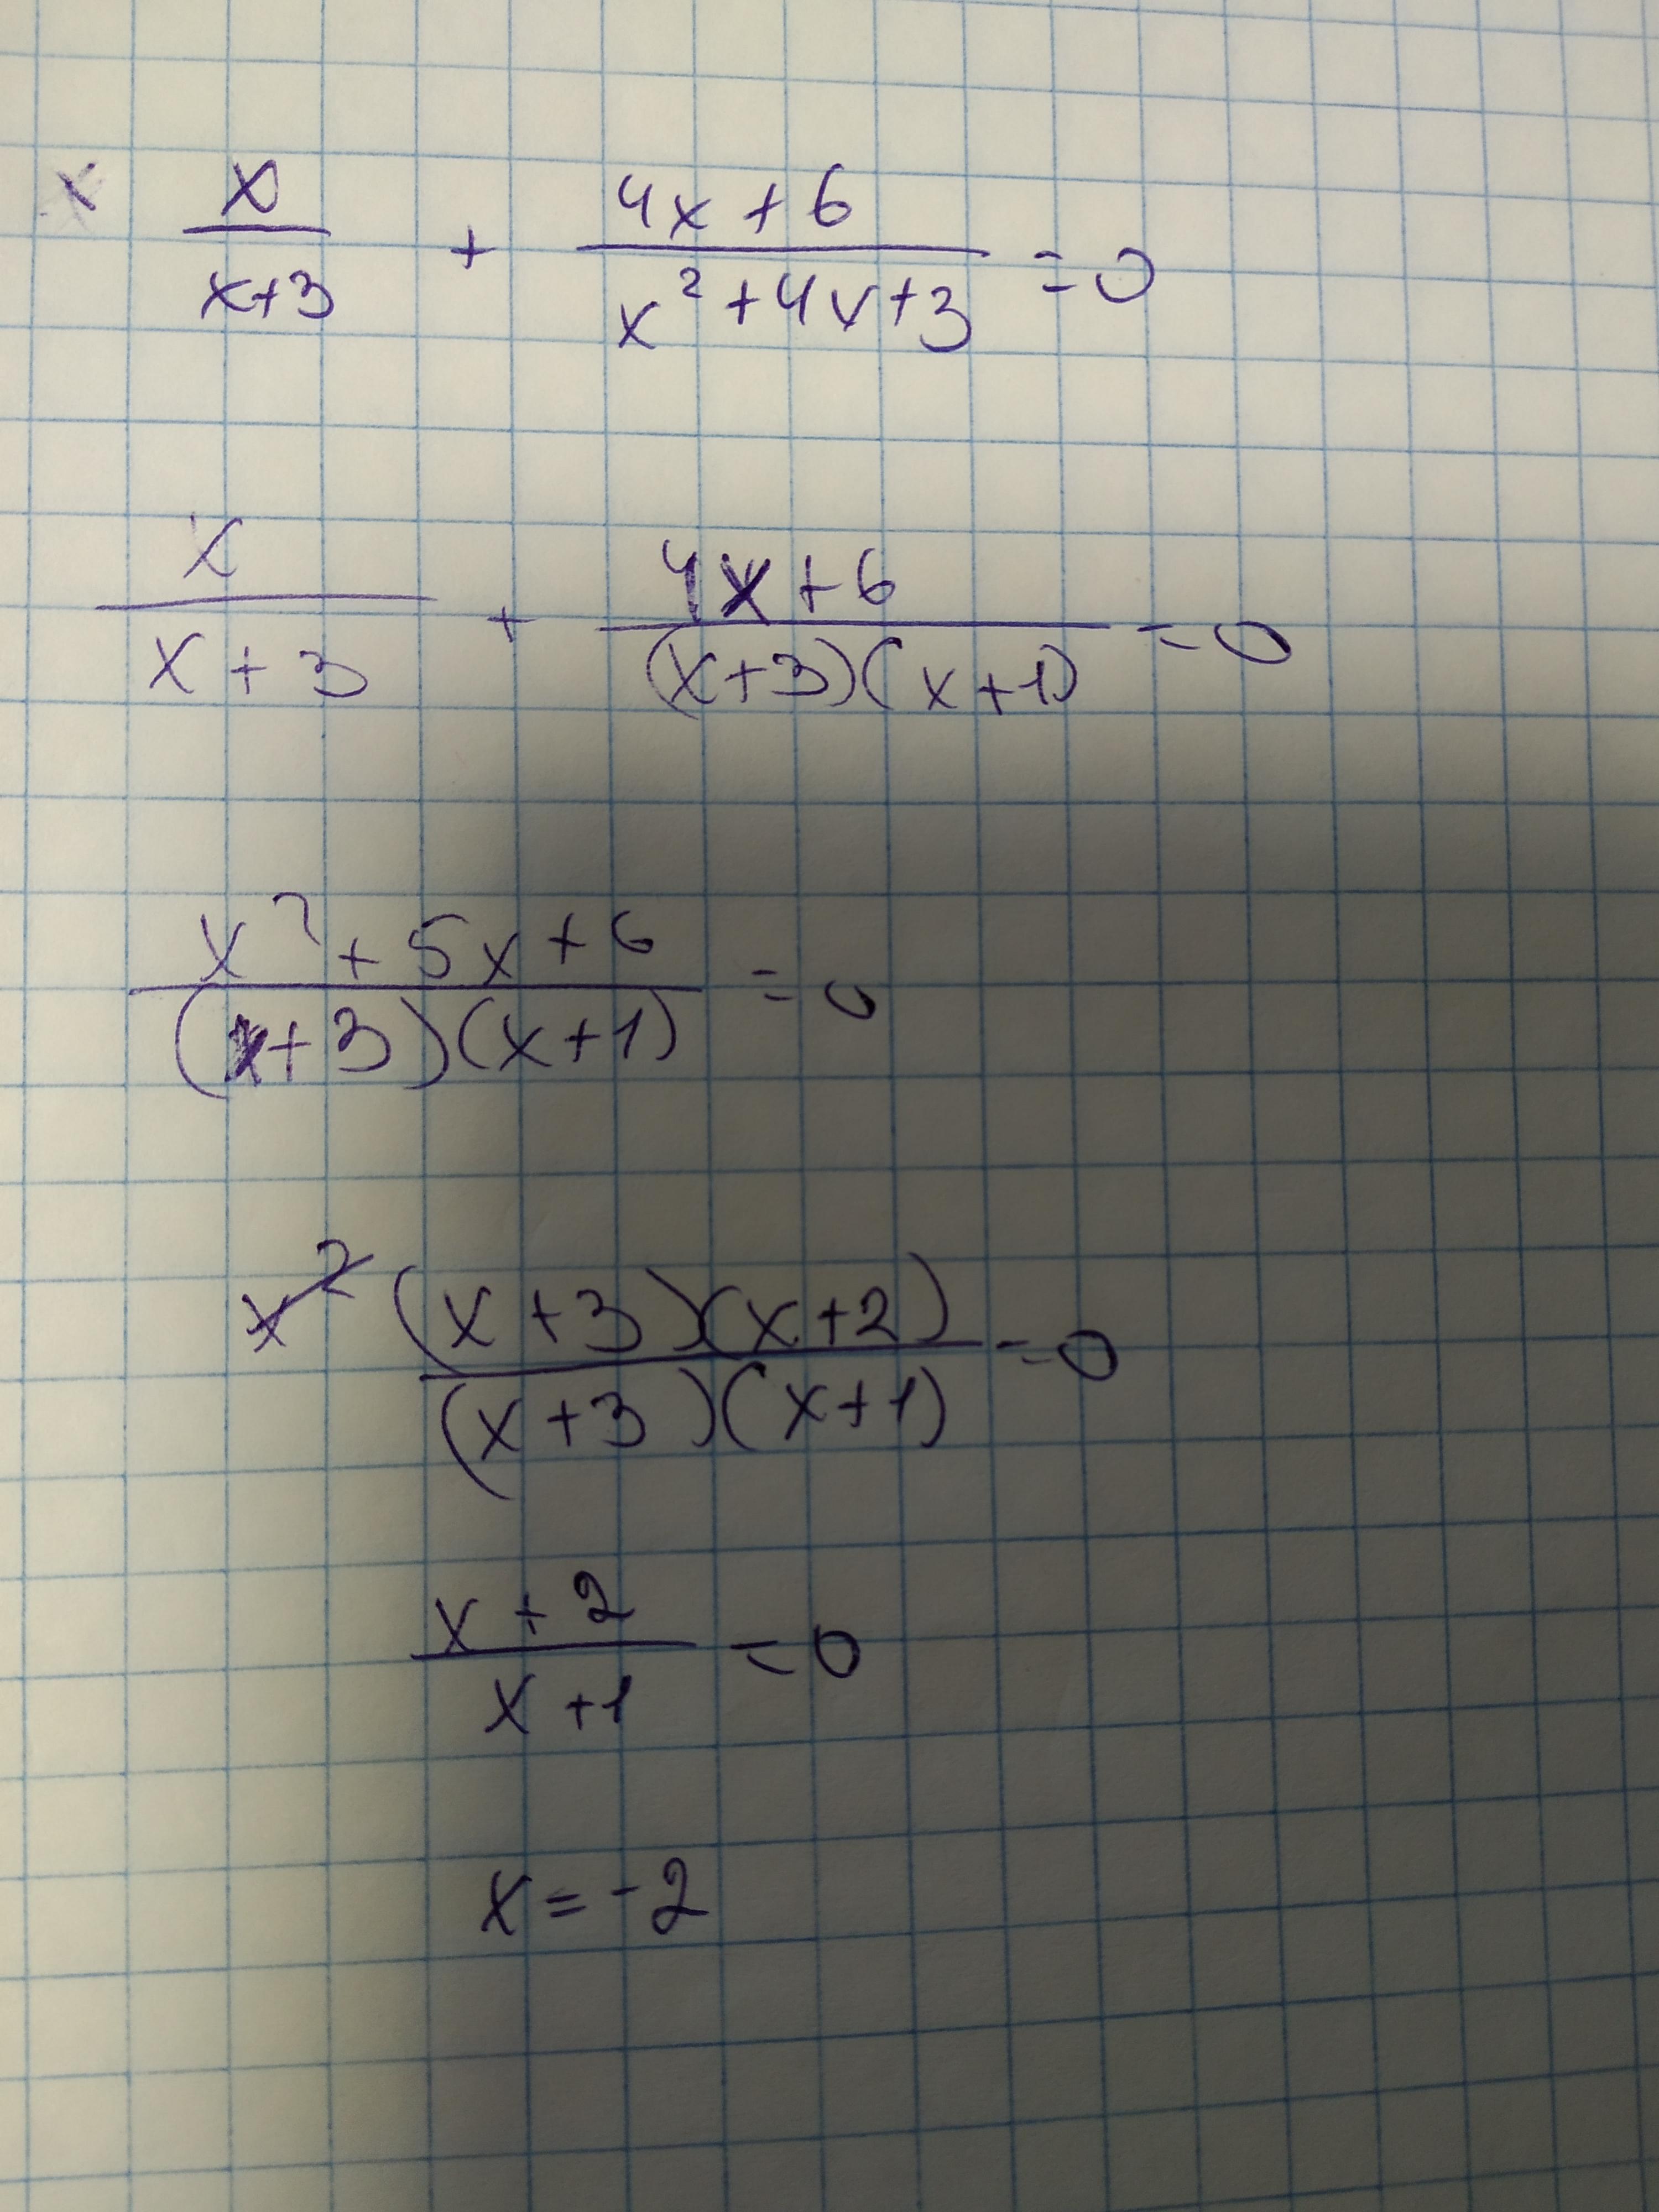 x x/(x+3) + (4x+6)/(x²+4x+3) = 0
x/(x+3) + (4x+6)/((x+3)(x+1)) = 0
(x²+5x+6)/((x+3)(x+1)) = 0
x² ((x+3)(x+2))/((x+3)(x+1)) = 0
(x+2)/(x+1) = 0
x = -2